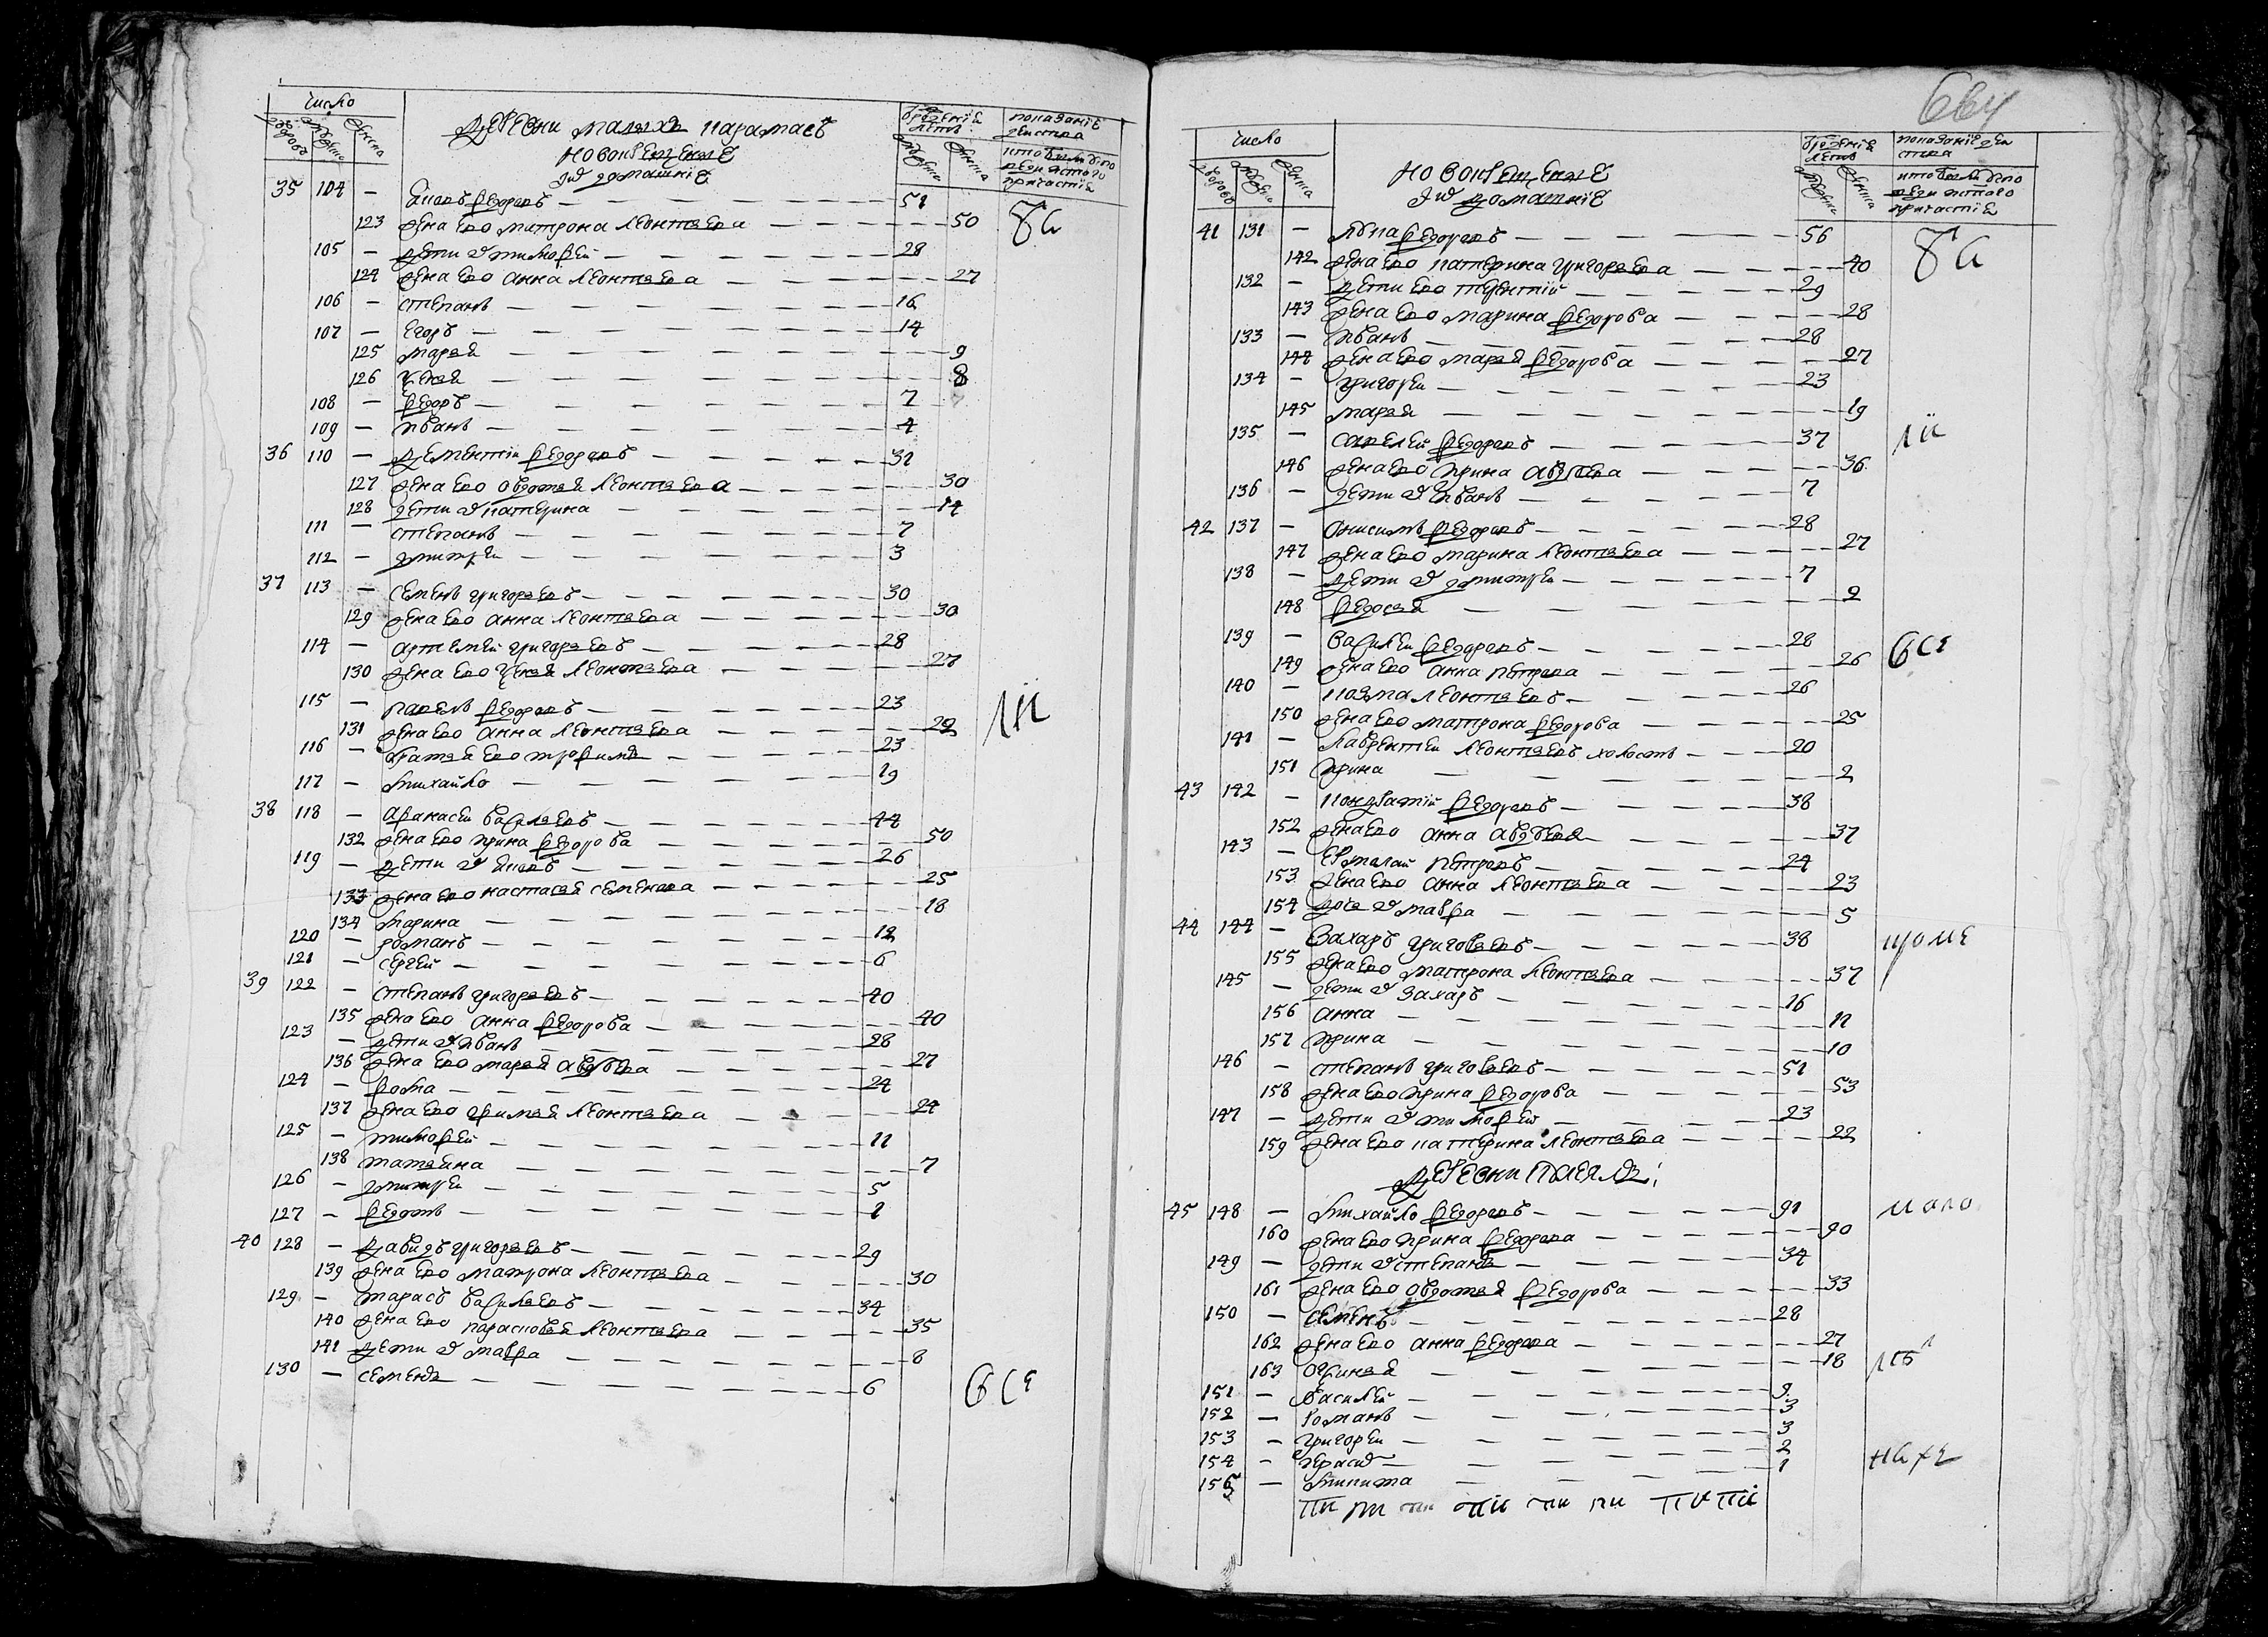 число
дворовъ мужеска женска
деревни малых карамасъ
новокрещеные
и их домашние
от рождения лета
мужеска женска
показание действа
кто был у кого
исповеди и святаго
причастия
35 104 – Яковъ Федоровъ – 51
123 жена ево матрона леонтьева – 50
105 – дети их тимофей – 28
124 жена ево анна леонтьева – 27
106 – степанъ – 16
107 – егоръ – 14
125 марья – 9
126 – 8
108 – федоръ – 7
109 – иванъ – 4
36 110 – дементий федоровъ – 31
127 жена ево овдотья леонтьева – 30
128 дети их катерина – 14
111 – степанъ – 7
112 – дмитрей – 3
37 113 – семенъ григорьевъ – 30
129 жена ево анна леонтьева – 30
114 – артемей григорьевъ – 28
130 жена ево леонтьева – 27
115 – павелъ федоровъ – 23
131 жена ево анна леонтьева – 22
116 – братья ево трофимъ – 23
117 – михайло – 19
38 118 – афанасей васильевъ – 44
132 жена ево ирина федорова – 50
119 – дети их яковъ – 26
133 жена ево настасья семенова – 25
134 марина – 18
120 – романъ – 12
121 – сергей – 6
39 122 – степанъ григорьевъ – 40
135 жена ево анна федорова – 40
123 – дети их иванъ – 28
136 жена ево марья авдеева – 27
124 – фома – 24
137 жена ево леонтьева – 24
125 – тимофей – 11
138 татьяна – 7
126 – дмитрей – 5
127 – федотъ – 1
40 128 – давидъ григорьевъ – 29
139 жена ево матрона леонтьева – 30
129 – тарасъ васильевъ – 34
140 жена ево парасковья леонтьева – 35
141 дети их мавра – 8
130 – семенъ – 6
все
664
число
дворовъ мужеска женска
новокрещеные
и их домашние
от рождения лета
мужеска женска
показание действа
кто был у кого
исповеди и святаго
причастия
41 131 – лука федоровъ – 56
142 жена ево катерина григорьева – 40
132 – дети ево терентий – 29
143 жена ево марина федорова – 28
133 – иванъ – 28
144 жена ево марья федорова – 27
134 – григорей – 23
145 марья – 19
135 – савелей федоровъ – 37
146 жена ево ирина авдеева – 36
136 – дети их иванъ – 7
42 137 – онисимъ федоровъ – 28
147 жена ево марина леонтьева – 27
138 – дети их дмитрей – 7
148 федосья – 2
139 – василей федоровъ – 28
все
149 жена ево анна петрова – 26
140 – козма леонтьевъ – 26
150 жена ево матрона федорова – 25
141 – лаврентей леонтьевъ холостъ – 20
151 ирина – 2
43 142 – кондратий федоровъ – 38
152 жена ево анна авдеева – 37
143 – ермалай петровъ – 24
153 жена ево анна леонтьева – 23
154 дочь их мавра – 5
44 144 – захаръ григорьевъ – 38
кроме
155 жена ево матрона леонтьева – 37
145 – дети их захаръ – 16
156 анна – 11
157 ирина – 10
146 – степанъ григорьевъ – 51
158 жена ево ирина федорова – 53
147 – дети их тимофей – 23
159 жена ево катерина леонтьева – 22
деревни
45 148 – михайло федоровъ – 91
мало
160 жена ево ирина федорова – 90
149 – дети их степанъ – 34
161 жена ево овдотья федорова – 33
150 – семенъ – 28
162 жена ево анна федорова – 27
163 – 18
151 – василей – 9
152 – романъ – 3
153 – григорей – 3
154 – герасим – 2
155 – микита – 1